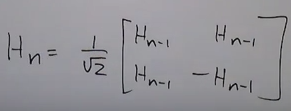 H_n = 1/√2 [ H_{n-1}   H_{n-1}
H_{n-1}   -H_{n-1} ]